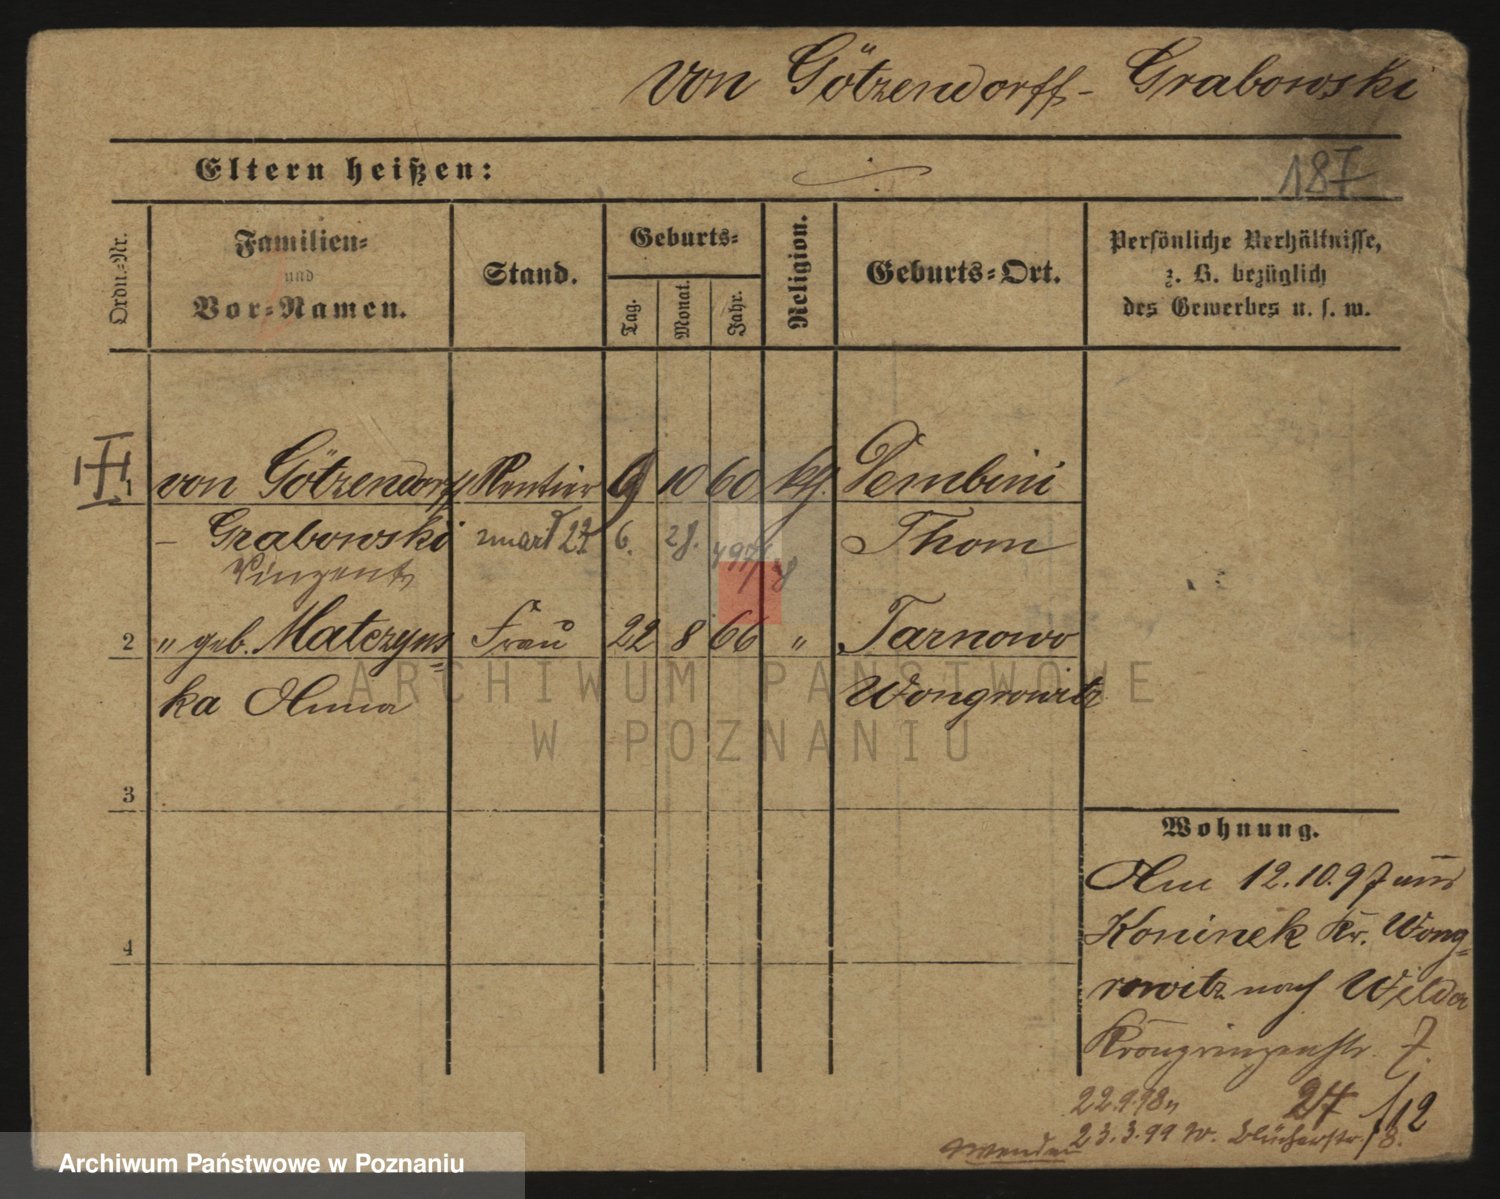 von Götzendorff- Grabowski
Eltern heißen:
187
Ordn.-Nr.
Familien-
und
Vor-Namen.
Stand.
Geburts-
Tag.
Monat.
Jahr.
Religion.
Geburts-Ort.
Persönliche Verhältnisse,
z. B. bezüglich
des Gewerbes u. s. w.
1 von Götzendorff Rentier 9 10 60 kg. Dembini
- Grabowski zmarł 22 6. 28. 497/28 Thorn
Vinzent
2 " geb. Matczyns= Frau 22 8 66 " Tarnowo
ka Anna Wongrowitz
3
4
Wohnung.
Am 12.10.97 aus
Koninek Kr. Wong=
rowitz nach Wilda
Kronprinzenstr. 7.
22.9.98 24 /12
wenden 23.3.99 W. Blücherstr. 8.
ARCHIWUM PAŃSTWOWE
W POZNANIU
Archiwum Państwowe w Poznaniu